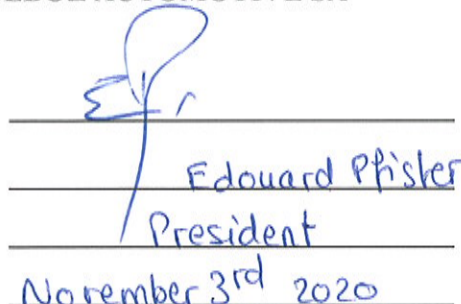 Edouard Pfister
President
November 3rd 2020